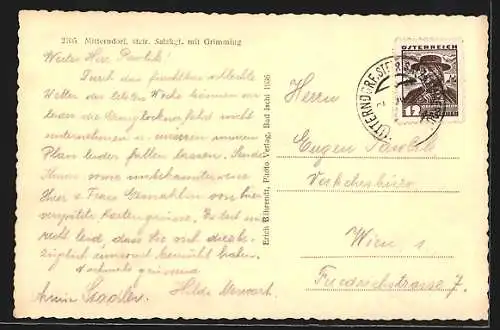 2395 Mitterndorf, steir. Salzkgt. mit Grimming
Werter Herr Pawlik!
Durch das furchtbar schlechte
Wetter der letzten Woche können wir
leider die Glocknerfahrt nicht
unternehmen u. müssen unseren
Plan leider fallen lassen. Sende
Ihnen sowie unbekannterweise
Ihrer s. Frau Gemahlin von hier
verspätete Kartengrüsse. Es tut mir
recht leid, dass Sie sich dies be-
züglich umsonst bemüht haben.
Nochmals grüssend
Hilde
Erich Bährendt, Photo Verlag, Bad Ischl 1936
ÖSTERREICH
12
Herrn
Eugen Pawlik
Verkehrsbüro
Wien 1.
Friedrichstrasse 7.